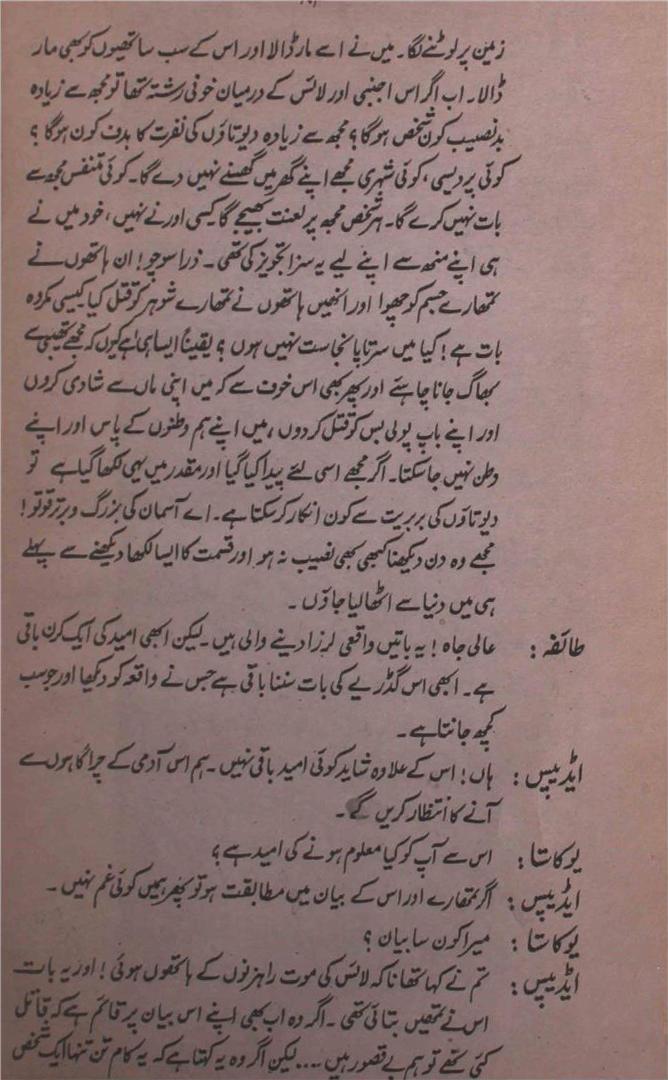 زمین پر لوٹنے لگا۔ میں نے اسے مار ڈالا اور اس کے سب ساتھیوں کو بھی مار
ڈالا۔ اب اگر اس اجنبی اور لائس کے درمیان خونی رشتہ تھا تو مجھ سے زیادہ
بدنصیب کون شخص ہوگا؟ مجھ سے زیادہ دیوتاؤں کی نفرت کا ہدف کون ہوگا؟
کوئی پردیسی، کوئی شہری مجھے اپنے گھر میں گھسنے نہیں دے گا۔ کوئی متنفس مجھ سے
بات نہیں کرے گا۔ ہر شخص مجھ پر لعنت بھیجے گا کسی اور نے نہیں، خود میں نے
ہی اپنے منھ سے اپنے لیے یہ سزا تجویز کی تھی۔ ذرا سوچو! ان ہاتھوں نے
تمھارے جسم کو چھوا اور انھیں ہاتھوں نے تمھارے شوہر کو قتل کیا کیسی مکروہ
بات ہے! کیا میں سرتاپا نجاست نہیں ہوں؟ یقیناً ایسا ہی ہے کیوں کہ مجھے تھیبی سے
بھاگ جانا چاہئے اور پھر بھی اس خوف سے کہ میں اپنی ماں سے شادی کروں
اور اپنے باپ پولی بس کو قتل کر دوں، میں اپنے ہم وطنوں کے پاس اور اپنے
وطن نہیں جا سکتا۔ اگر مجھے اسی لئے پیدا کیا گیا اور مقدر میں یہی لکھا گیا ہے تو
دیوتاؤں کی بربریت سے کون انکار کر سکتا ہے۔ اے آسمان کی بزرگ و برتر قوتو!
مجھے وہ دن دیکھنا کبھی بھی نصیب نہ ہو اور قسمت کا ایسا لکھا دیکھنے سے پہلے
ہی میں دنیا سے اٹھا لیا جاؤں۔
طائفہ: عالی جاہ! یہ باتیں واقعی لرزا دینے والی ہیں۔ لیکن ابھی امید کی ایک کرن باقی
ہے۔ ابھی اس گڈریے کی بات سننا باقی ہے جس نے واقعہ کو دیکھا اور جو سب
کچھ جانتا ہے۔
ایڈیپس: ہاں! اس کے علاوہ شاید کوئی امید باقی نہیں۔ ہم اس آدمی کے چراگاہوں سے
آنے کا انتظار کریں گے۔
یوکاسٹا: اس سے آپ کو کیا معلوم ہونے کی امید ہے؟
ایڈیپس: اگر تمھارے اور اس کے بیان میں مطابقت ہو تو پھر ہمیں کوئی غم نہیں۔
یوکاسٹا: میرا کون سا بیان؟
ایڈیپس: تم نے کہا تھا نا کہ لائس کی موت راہزنوں کے ہاتھوں ہوئی! اور یہ بات
اس نے تمھیں بتائی تھی۔ اگر وہ اب بھی اپنے اس بیان پر قائم ہے کہ قاتل
کئی تھے تو ہم بے قصور ہیں .... لیکن اگر وہ یہ کہتا ہے کہ یہ کام تن تنہا ایک شخص